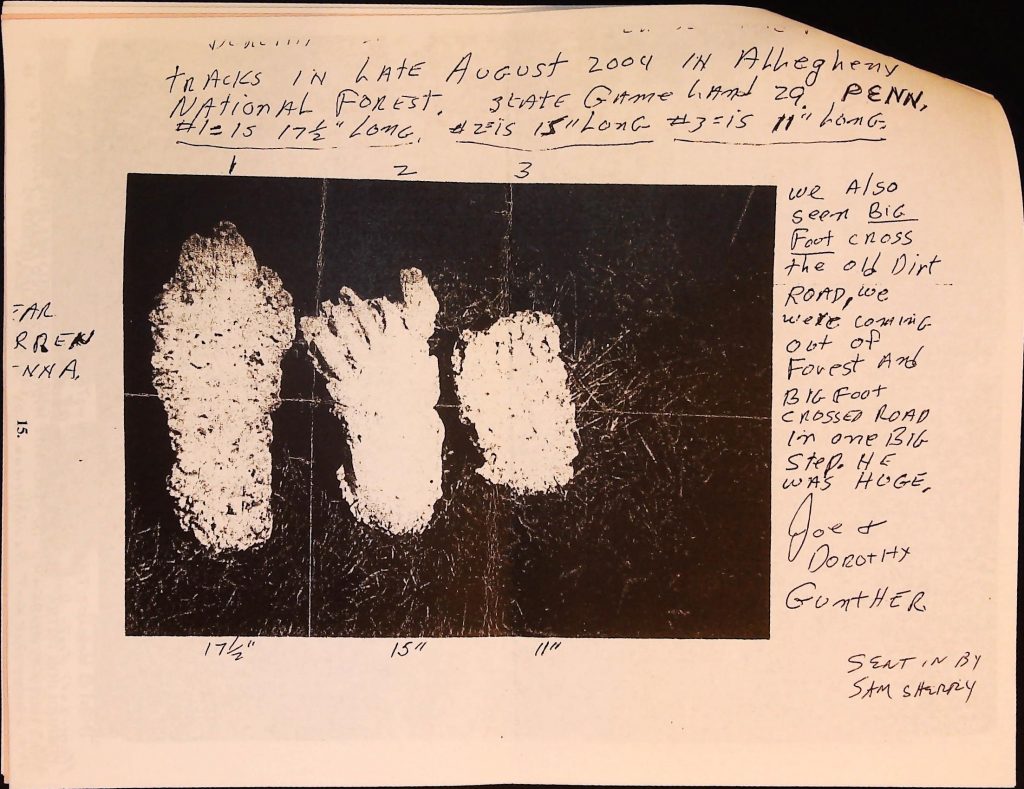 TRACKS IN LATE AUGUST 2004 IN Allegheny
NATIONAL FOREST. STATE GAME LAND 29. PENN.
#1=IS 17½" LONG. #2=IS 15" LONG #3=IS 11" LONG.
1 2 3
we Also
seen BIG
Foot cross
the old Dirt
ROAD, we
were coming
out of
Forest And
BIG Foot
CROSSED ROAD
IN one BIG
Step. HE
WAS HUGE.
Joe &
DOROTHY
GuntHER
SENT IN BY
SAM SHERRY
17½" 15" 11"
AR
RREN
NNA.
15.